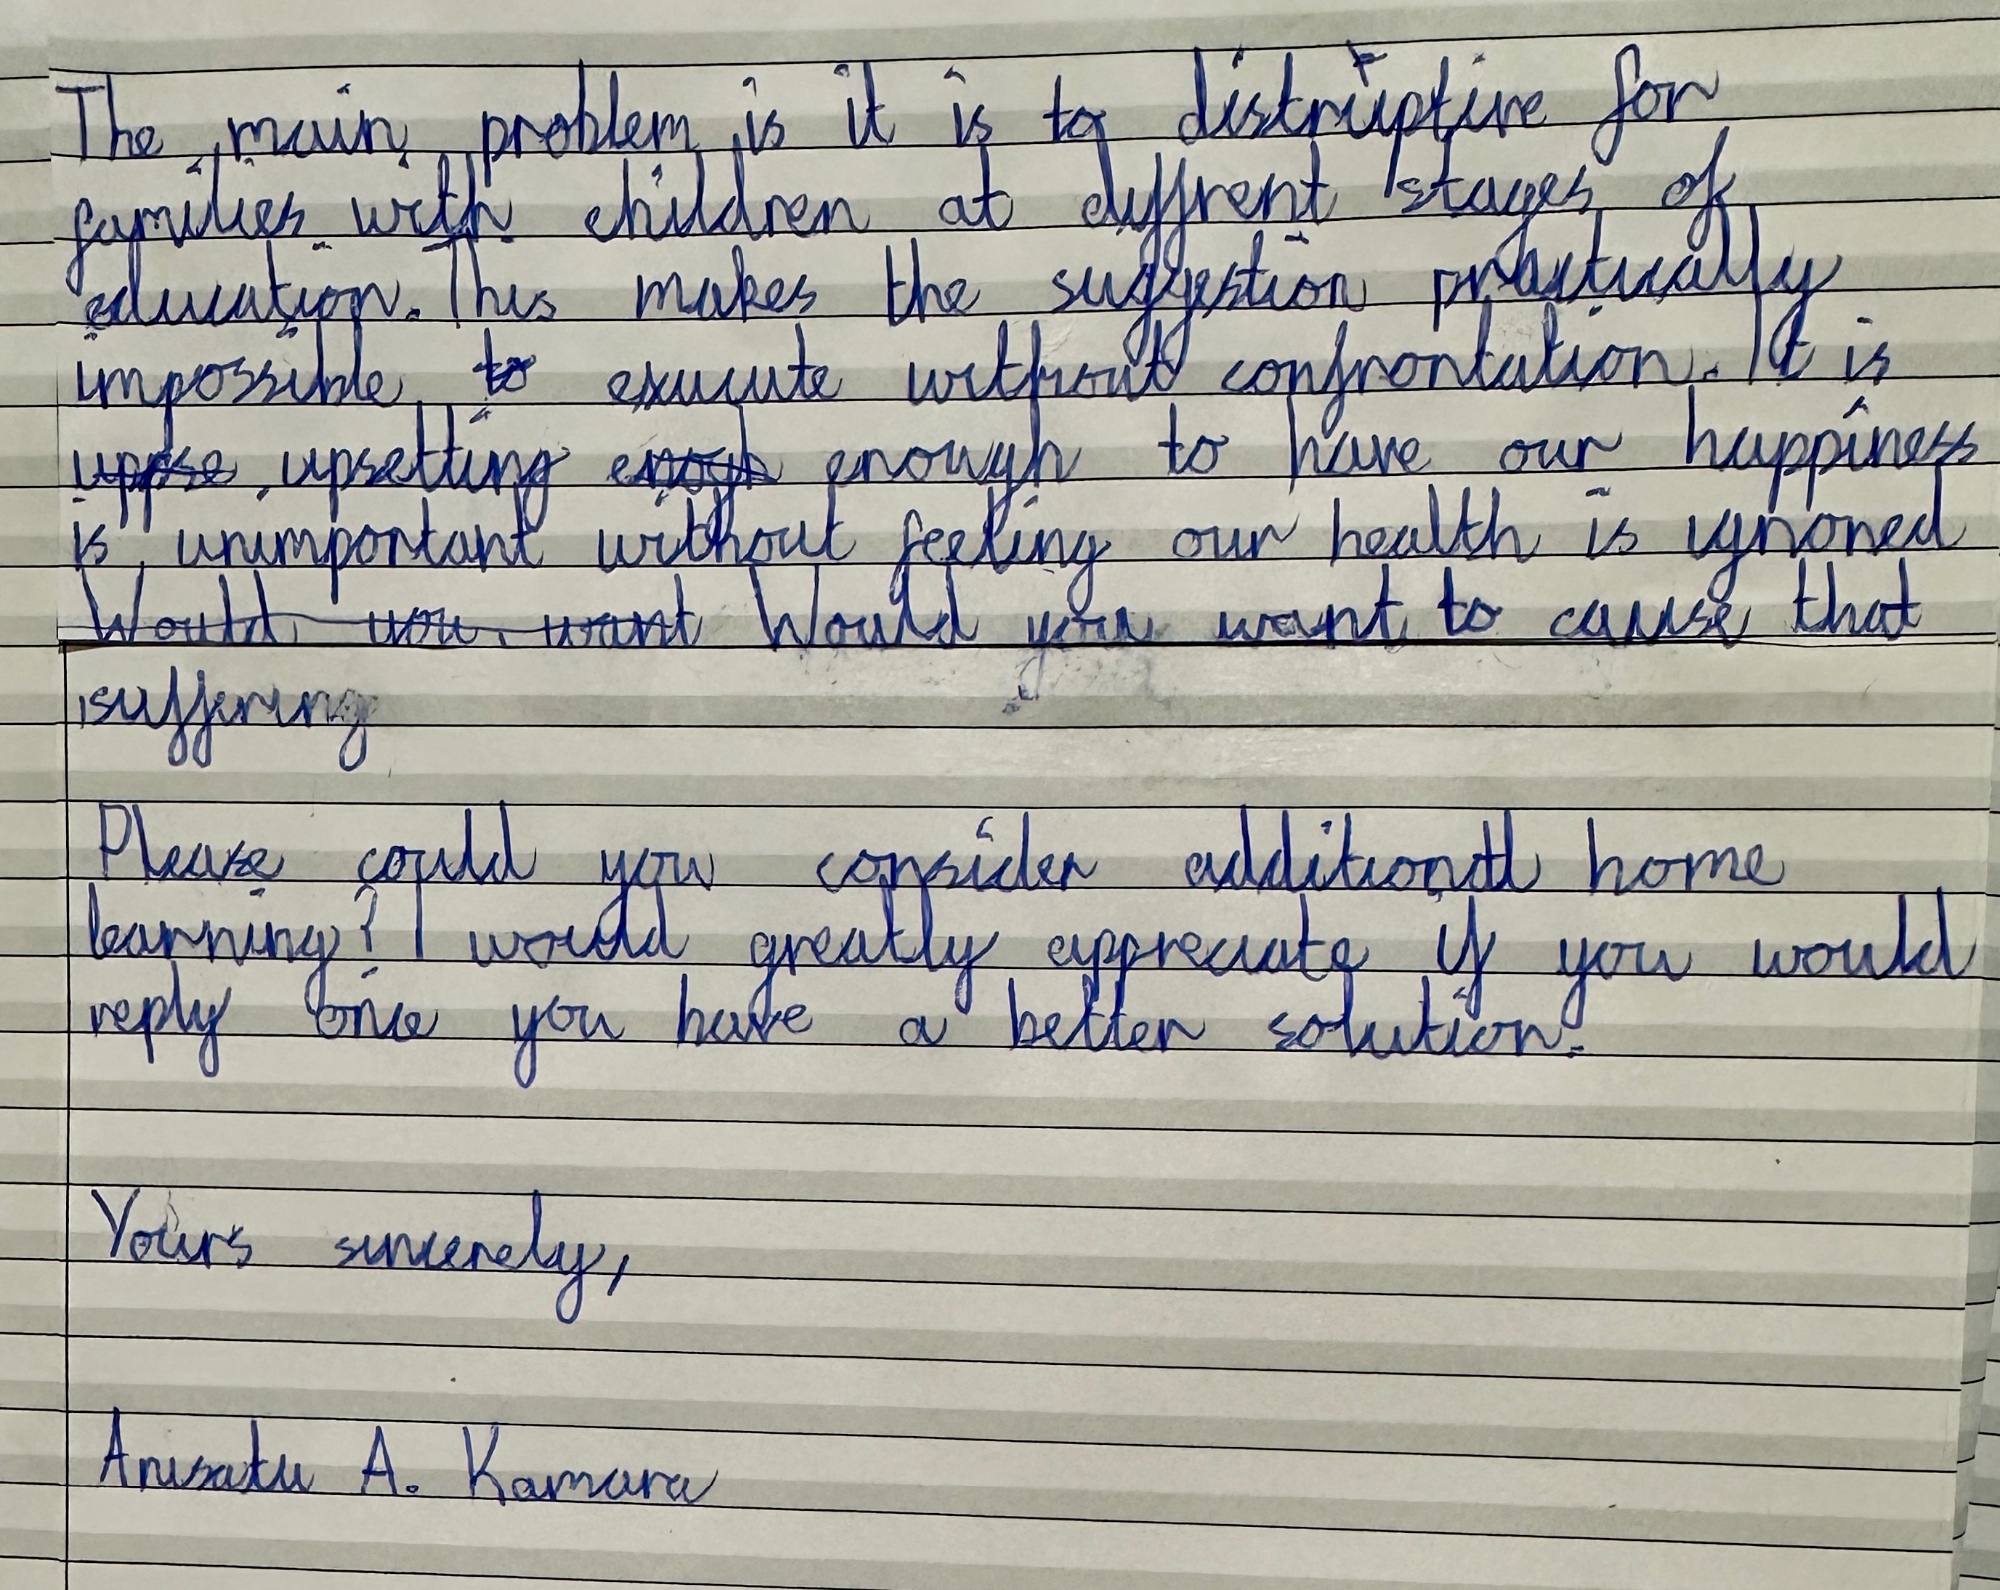 The main problem is it is to distruptive for
families with children at diffrent stages of
education. This makes the suggestion practically
impossible to exucute without confrontation. It is
uppse upsetting enogh enough to have our happiness
is unimportant without feeling our health is ignored
Would you want Would you want to cause that
suffering
Please could you consider additional home
learning? I would greatly appreciate if you would
reply once you have a better solution.
Yours sincerely,
A. Kamara